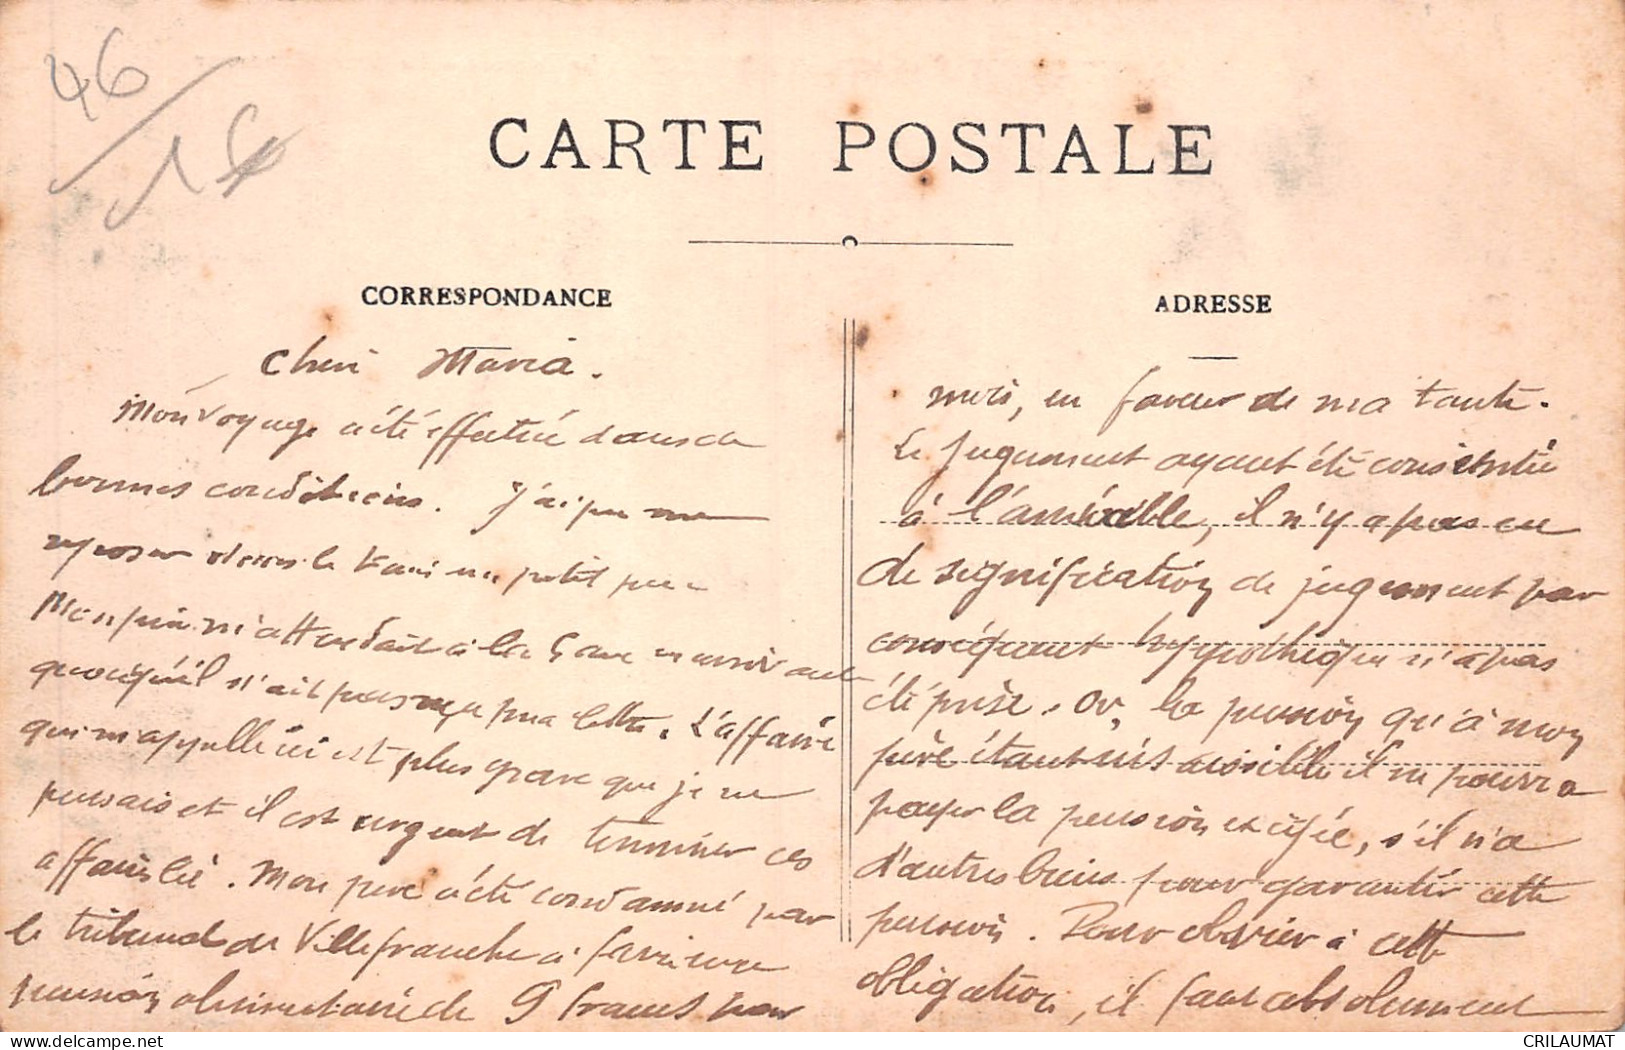 46
CARTE POSTALE
CORRESPONDANCE
Cheri Maria.
Mon voyage a été effectué dans de
bonnes conditions. J'ai pu me
reposer dans le train un petit peu.
Mon père m'attendait à la Gare
quoiqu'il n'ait pas reçu ma lettre. L'affaire
qui m'appelle ici est plus grave que je ne
pensais et il est urgent de terminer ces
affaires ici. Mon père a été condamné par
le tribunal de Villefranche à faire une
pension alimentaire de 9 francs par
ADRESSE
mois, en faveur de ma tante.
Le jugement ayant été consentie
à l'amiable, il n'y a pas eu
de signification de jugement par
conséquent hypothèque n'a pas
été prise. Or, la pension qu'a mon
père étant insaisissable il ne pourra
payer la pension exigée, s'il n'a
d'autres biens pour garantir cette
pension. Pour obvier à cette
obligation, il faut absolument
delcampe.net
CRILAUMAT